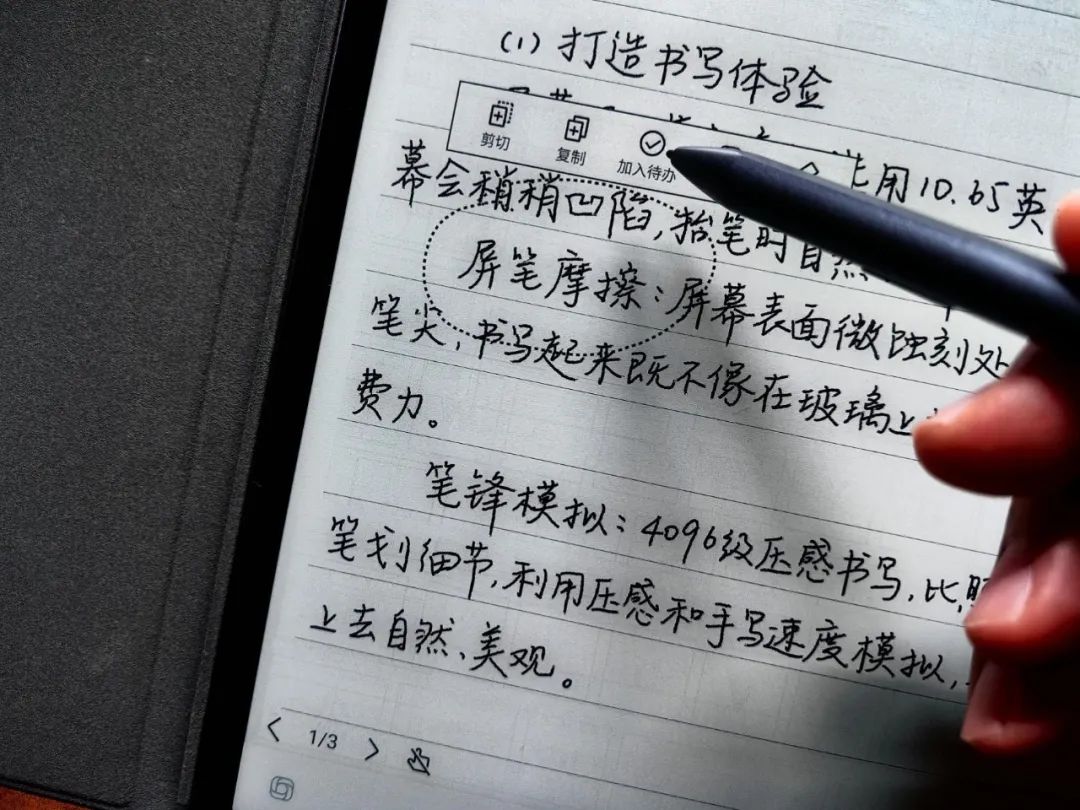 (1) 打造书写体验
剪切 复制 加入待办
用10.65英
幕会稍稍凹陷,抬笔时自然
屏笔摩擦:屏幕表面微蚀刻处
笔尖,书写起来既不像在玻璃上
费力。
笔锋模拟:4096级压感书写,比
笔划细节,利用压感和手写速度模拟,
上去自然、美观。
1/3